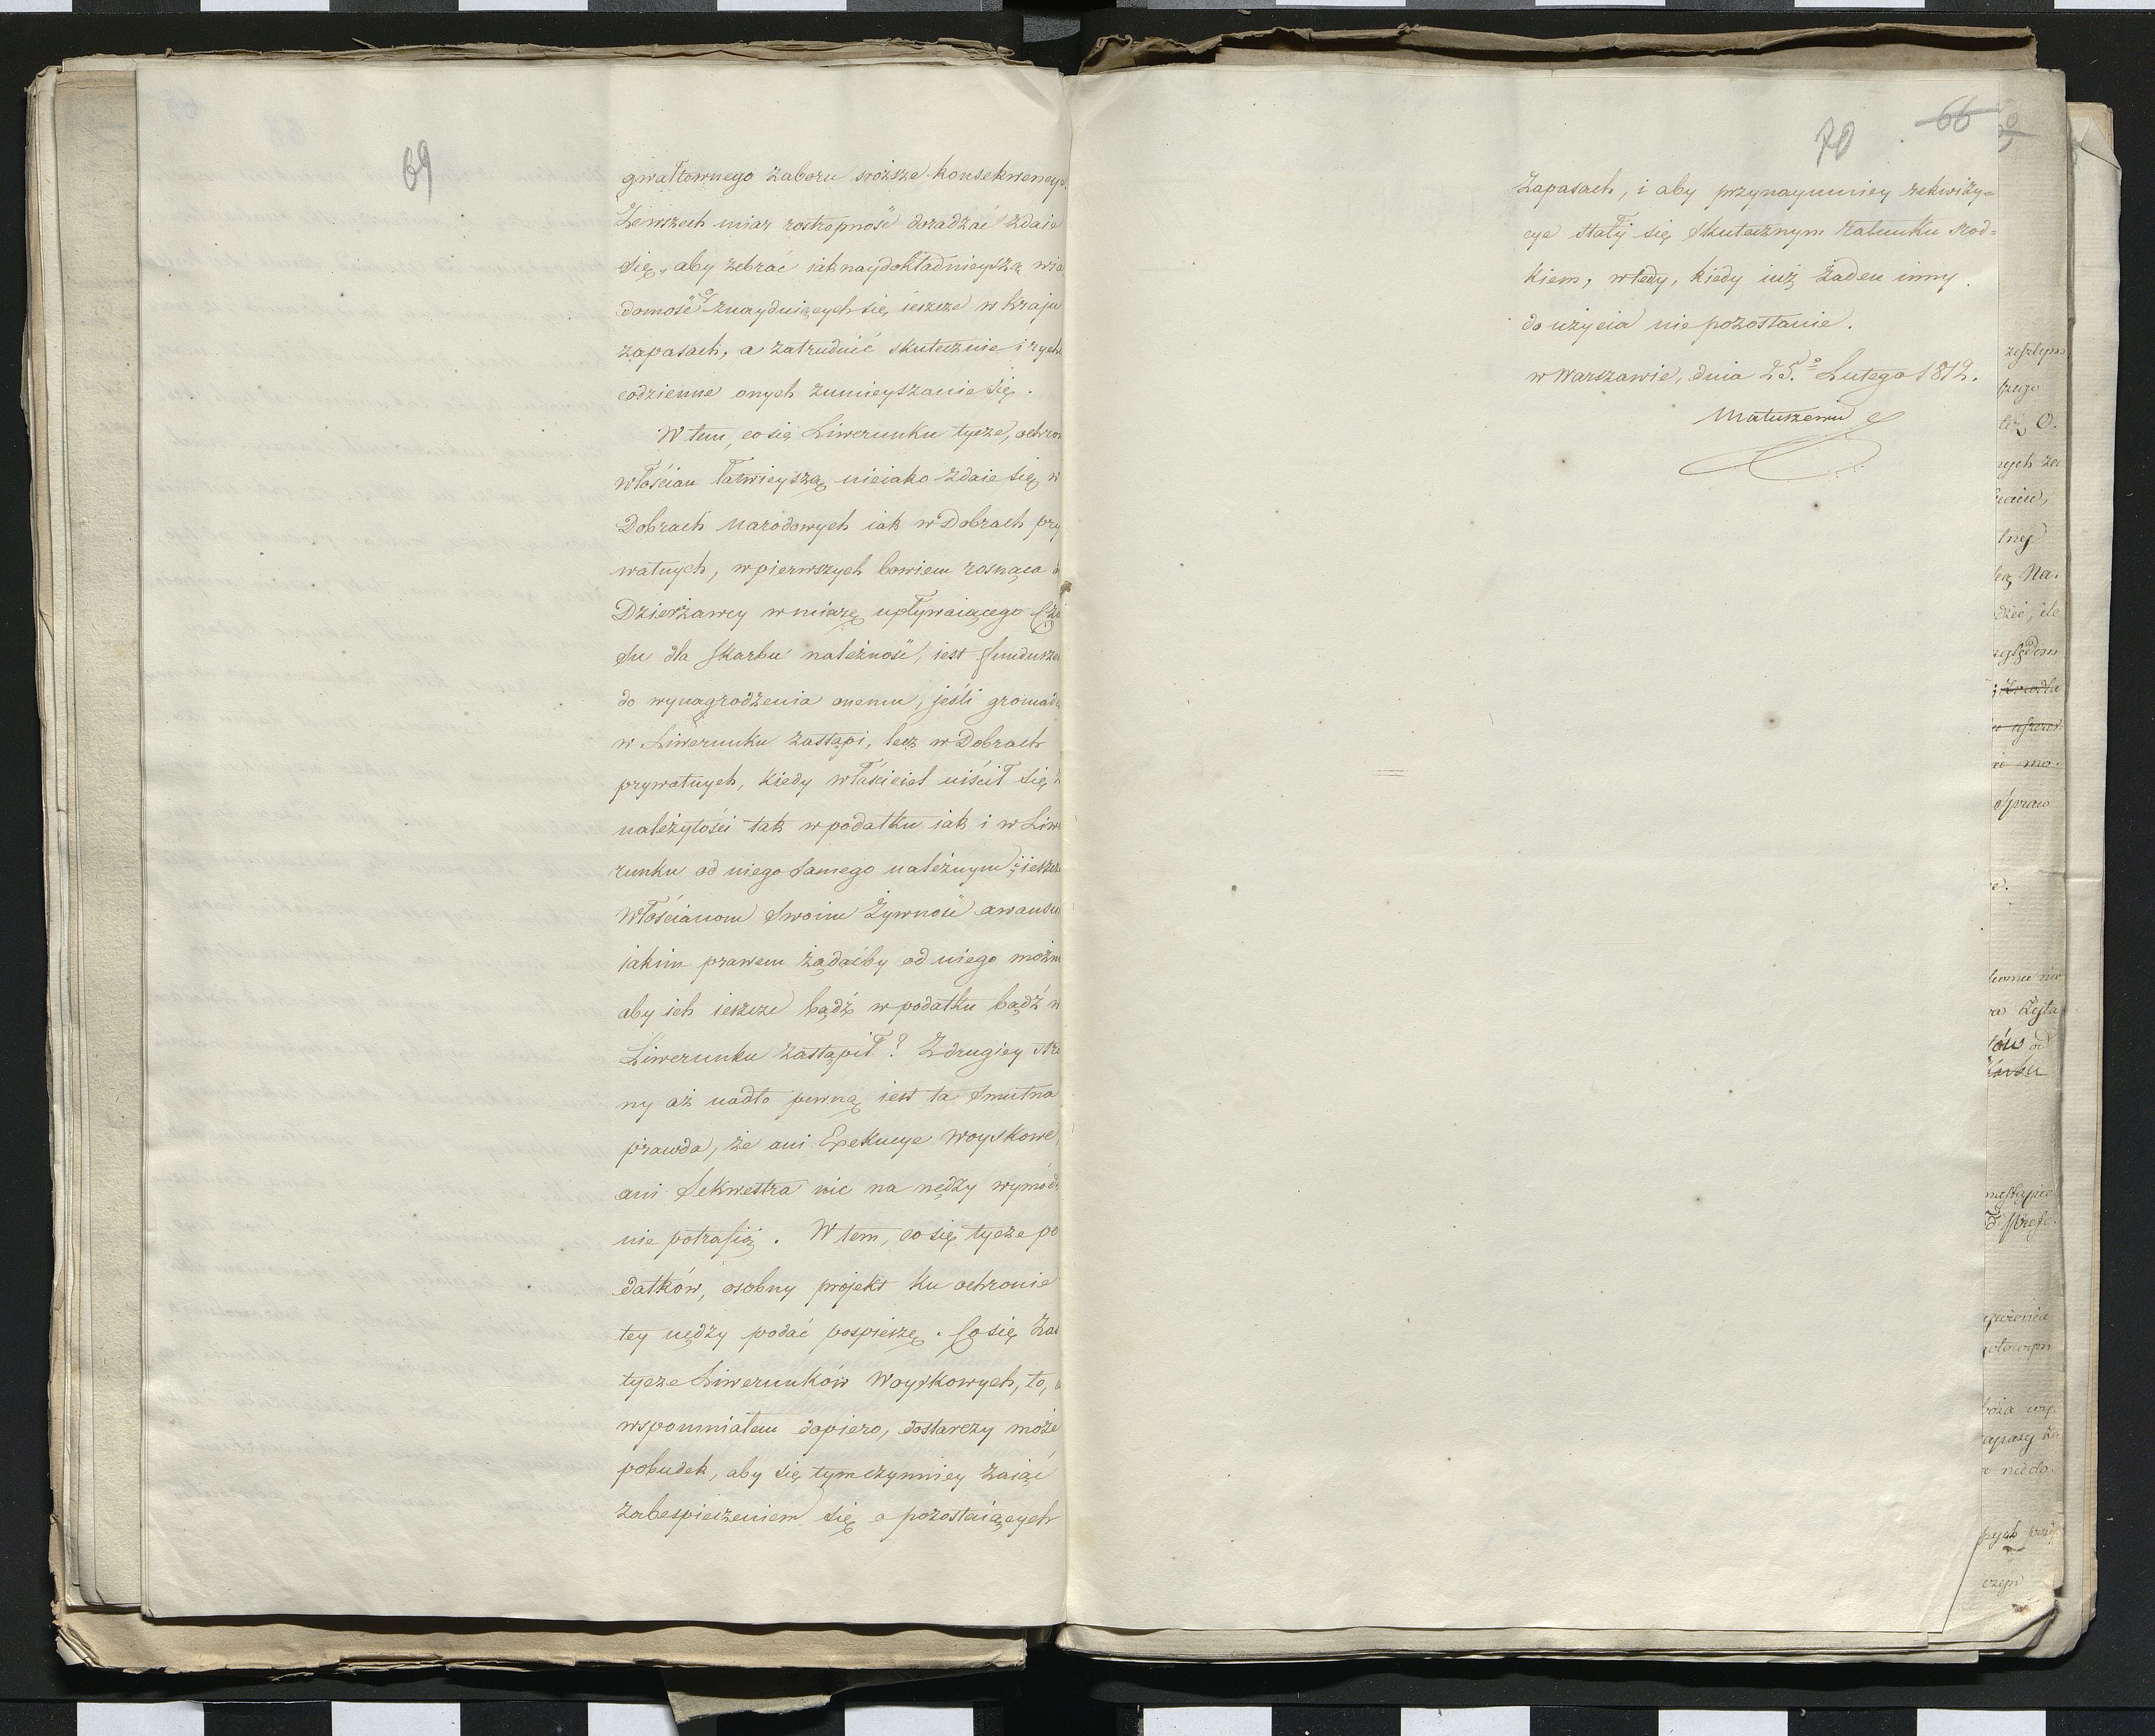 69
gwałtownego zaboru sroższe konsekwencye.
Zewszech miar roztropność doradzać zdaie
się, aby zebrać iak naydokładnieyszą wia
domość o znayduiących się ieszcze w kraju
zapasach, a zatrudnić skutecznie i rychł
codzienne onych zmnieyszanie się.
W tem, co się Liwerunku tycze, ochron
włościan łatwieyszą nieiako zdaie się w
Dobrach Narodowych iak w Dobrach pry
watnych, w pierwszych bowiem rosnąca
Dzierżawcy w miarę upływaiącego Cza
su dla Skarbu należność, iest fundusze
do wynagrodzenia onemu, jeśli gromad
w Liwerunku zastąpi, lecz w Dobrach
prywatnych, kiedy właściciel uiścił się z
należytości tak w podatku iak i w Liwe
runku od niego samego należnym; ieszcze
Włościanom swoim żywność awansu
jakim prawem żądaćby od niego możn
aby ich ieszcze bądź w podatku bądź w
Liwerunku zastąpił? Z drugiey stro
ny aż nadto pewną iest ta smutna
prawda, że ani Exekucye Woyskowe
ani Sekwestra nic na nędzy wymódz
nie potrafią. W tem, co się tycze po
datków, osobny projekt ku ochronie
tey nędzy podać pospieszę. Co się zaś
tycze Liwerunków Woyskowych, to,
wspomniałem dopiero, dostarczy może
pobudek, aby się tymczynniey zaiąć
zabespieczeniem się o pozostaiących
66
70
Zapasach, i aby przynaymniey rekwizy=
cye stały się skutecznym ratunku srod=
kiem, wtedy, kiedy iuż żaden inny
do użycia nie pozostanie.
w Warszawie, dnia 25.º Lutego 1812.
Matuszewic